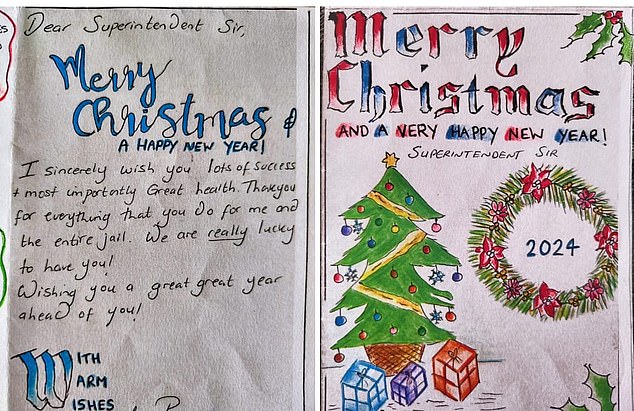 Dear Superintendent Sir,
Merry
Christmas &
A HAPPY NEW YEAR!
I sincerely wish you lots of success
+ most importantly Great health. Thankyou
for everything that you do for me and
the entire jail. We are really lucky
to have you!
Wishing you a great great year
ahead of you!
WITH
WARM
WISHES
Merry
Christmas
AND A VERY HAPPY NEW YEAR!
SUPERINTENDENT SIR
2024